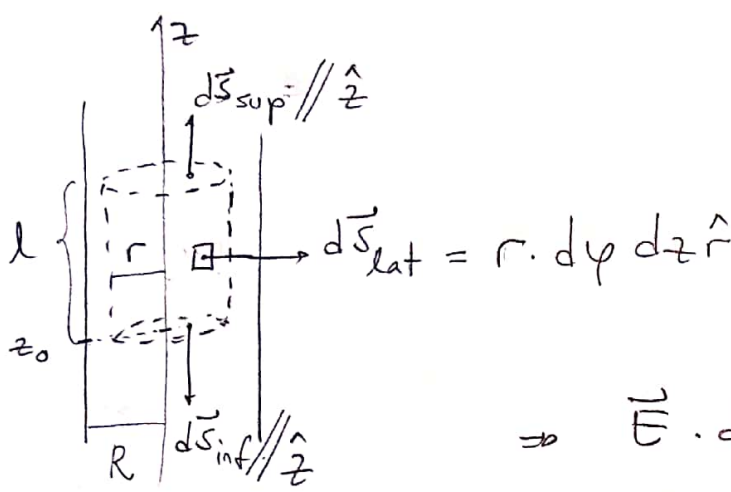 z
dS⃗ sup // ẑ
l
r
dS⃗ lat = r. dφ dz r̂
z₀
R
dS⃗ inf // ẑ
⇒ E⃗ .